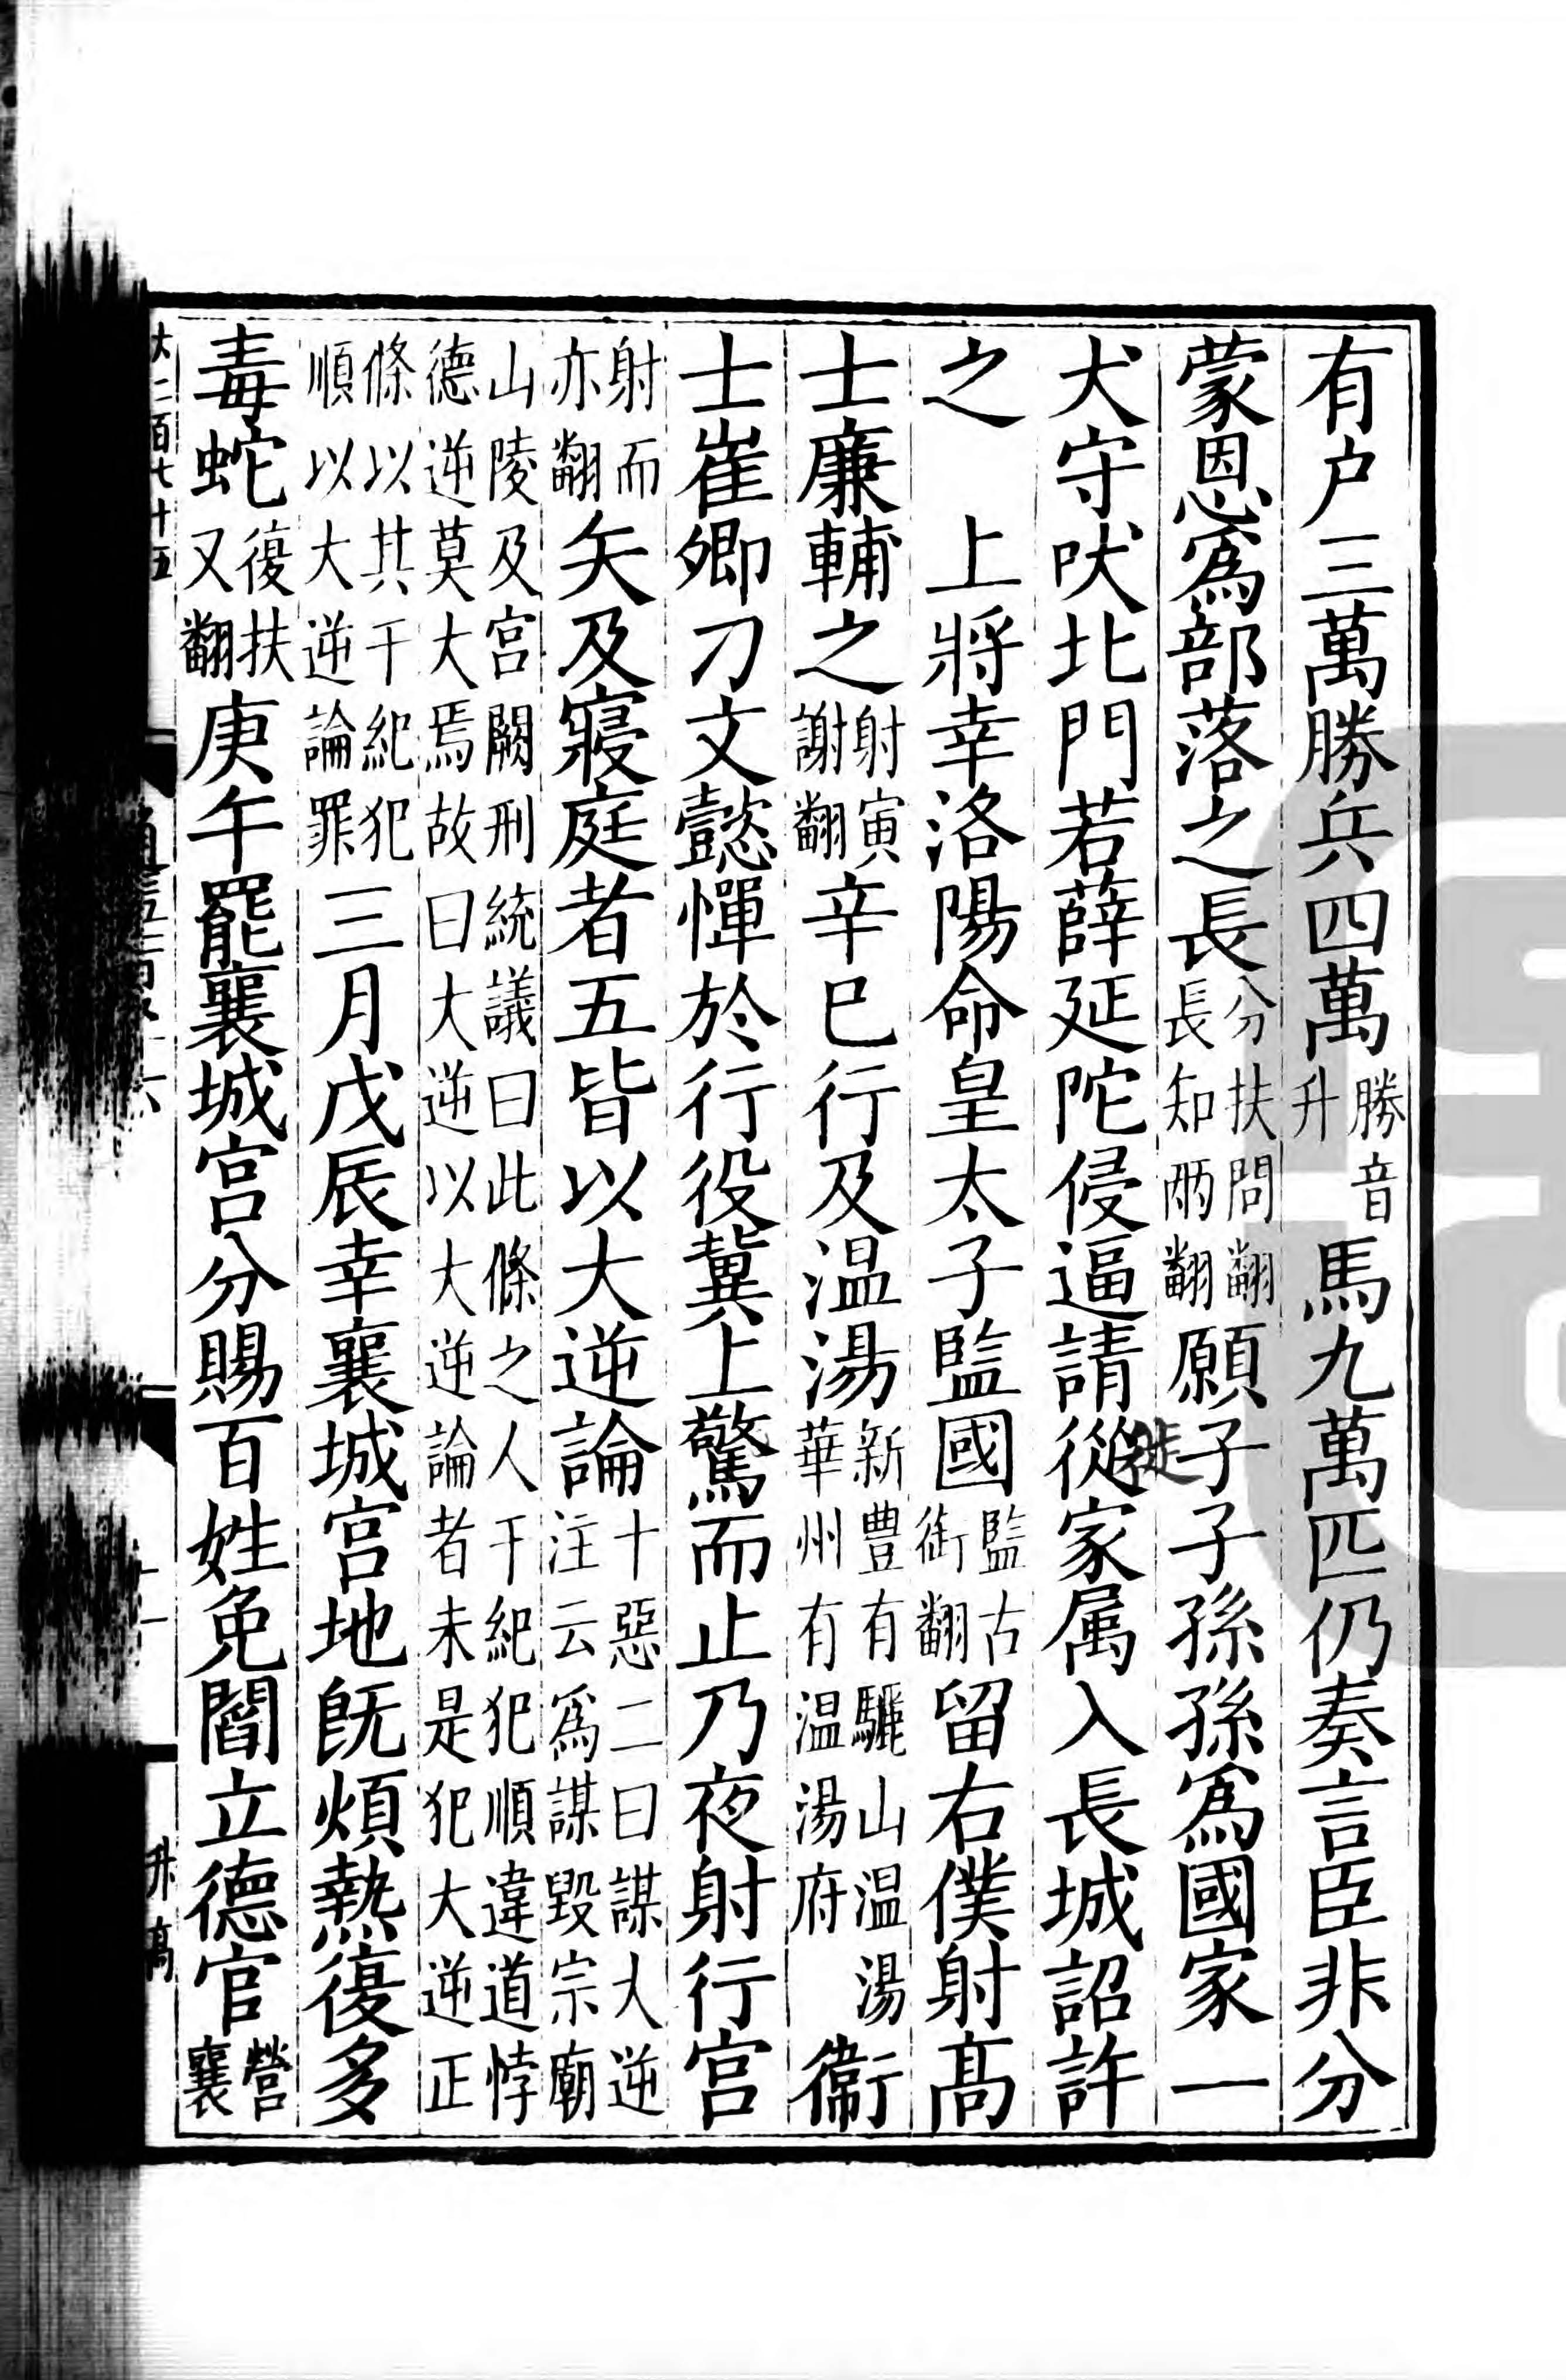 有户三萬勝兵四萬勝音升馬九萬匹仍奏言臣非分
蒙恩爲部落之長分扶問翻長知兩翻願子子孫孫爲國家一
犬守吠北門若薛延陀侵逼請從家属入長城詔許
徙
之 上將幸洛陽命皇太子監國監古銜翻留右僕射髙
士廉輔之射寅謝翻辛巳行及温湯新豊有驪山温湯華州有温湯府衞
士崔卿刁文懿憚於行役冀上驚而止乃夜射行宫
射而亦翻矢及寢庭者五皆以大逆論十惡二曰謀大逆注云爲謀毀宗廟
山陵及宫闕刑統議曰此條之人干紀犯順違道悖德逆莫大焉故曰大逆以大逆論者未是犯大逆正
條以其干紀犯順以大逆論罪三月戊辰幸襄城宫地旣煩熱復多
毒蛇復扶又翻庚午罷襄城宫分賜百姓免閻立德官營襄